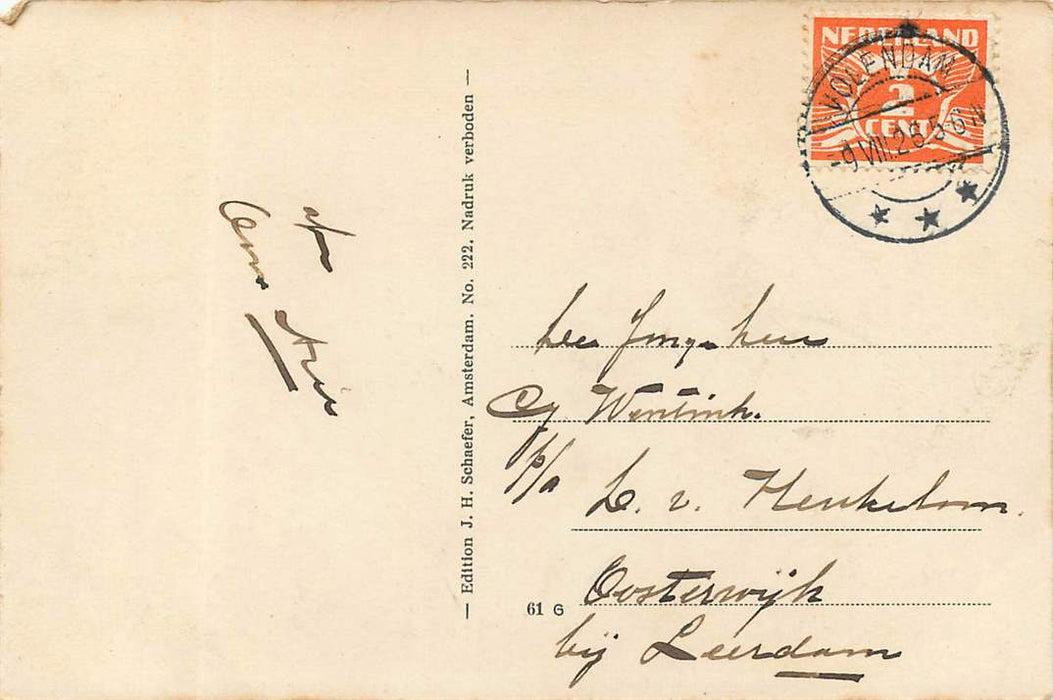 NEDERLAND
2
CENT
VOLENDAM
-9 VIII.26 5-6 N
— Edition J. H. Schaefer, Amsterdam. No. 222. Nadruk verboden —
Cy Wentink.
p/a
L. v. Heukelom.
Oosterwijk
bij Leerdam
61 G